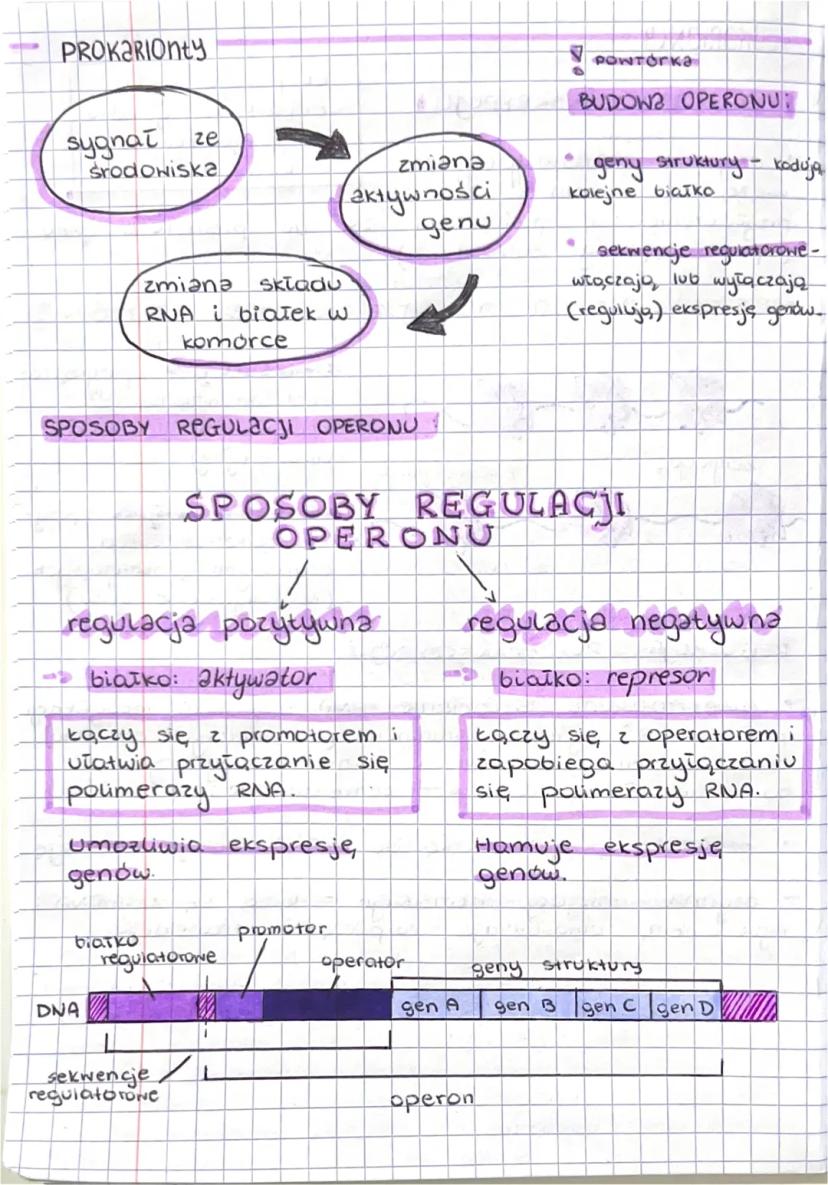 PROKARIONTY
sygnał ze
środowiska
zmiana
aktywności
genu
zmiana składu
RNA i białek w
komórce
! POWTÓRKA
BUDOWA OPERONU:
• geny struktury – kodują
kolejne białko
• sekwencje regulatorowe-
włączają lub wyłączają
(regulują) ekspresję genów.
SPOSOBY REGULACJI OPERONU:
SPOSOBY REGULACJI
OPERONU
regulacja pozytywna
→ białko: aktywator
Łączy się z promotorem i
ułatwia przyłączanie się
polimerazy RNA.
Umożliwia ekspresję
genów.
regulacja negatywna
→ białko: represor
Łączy się z operatorem i
zapobiega przyłączaniu
się polimerazy RNA.
Hamuje ekspresję
genów.
białko
regulatorowe
promotor
operator
geny struktury
DNA gen A gen B gen C gen D
sekwencje
regulatorowe
operon